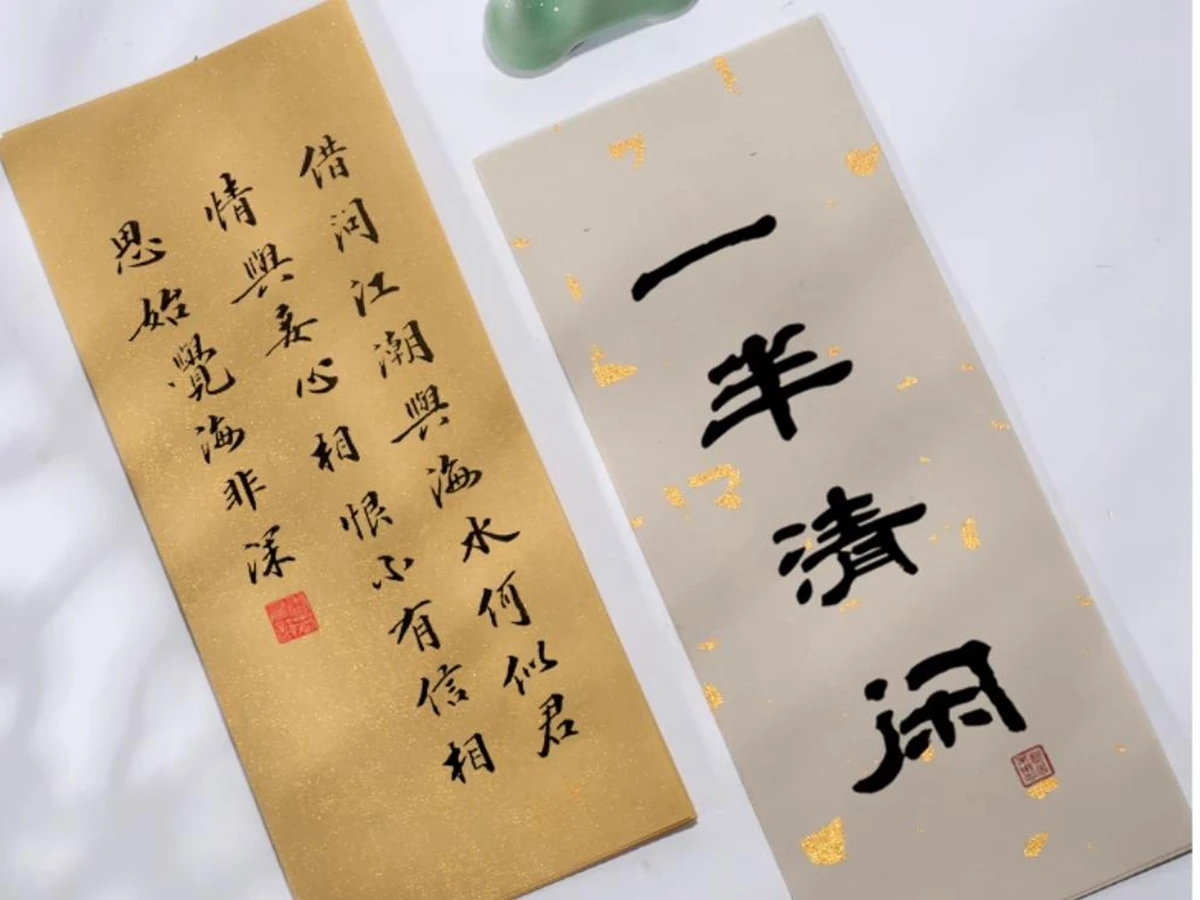 借问江潮與海水何似君
情與妾心相恨不有信相
思始覺海非深
一半清闲